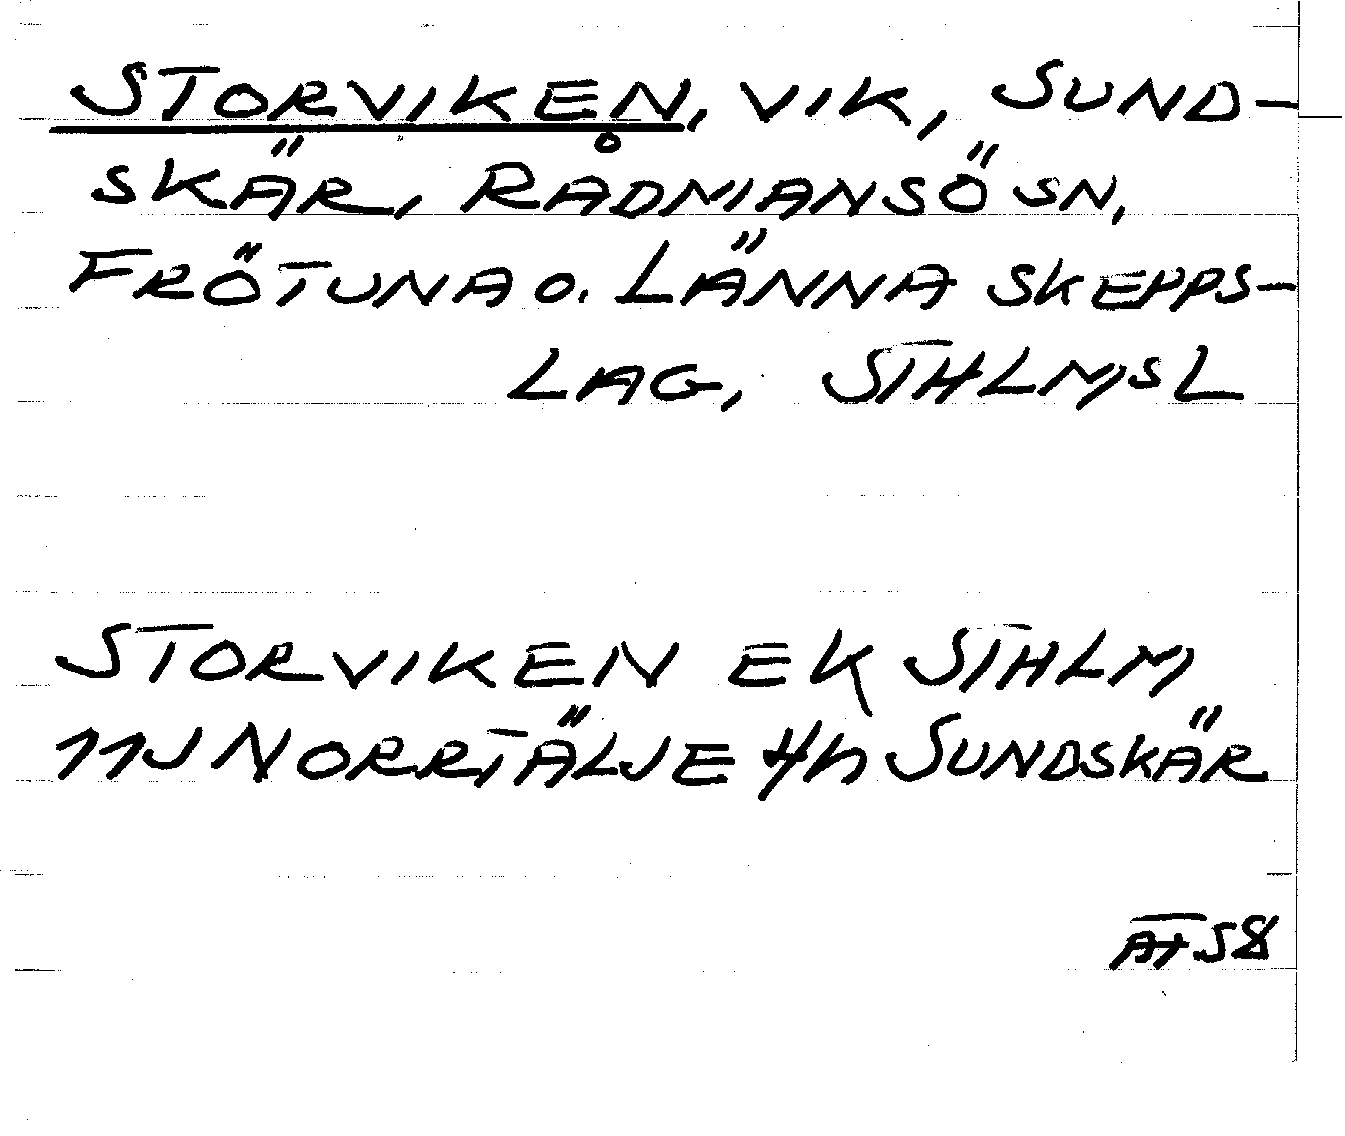 STORVIKEN, VIK, SUND-
SKÄR, RÅDMANSÖ SN,
FRÖTUNA O. LÄNNA SKEPPS-
LAG, STHLMS L
STORVIKEN EK STHLM
11J NORRTÄLJE SUNDSKÄR